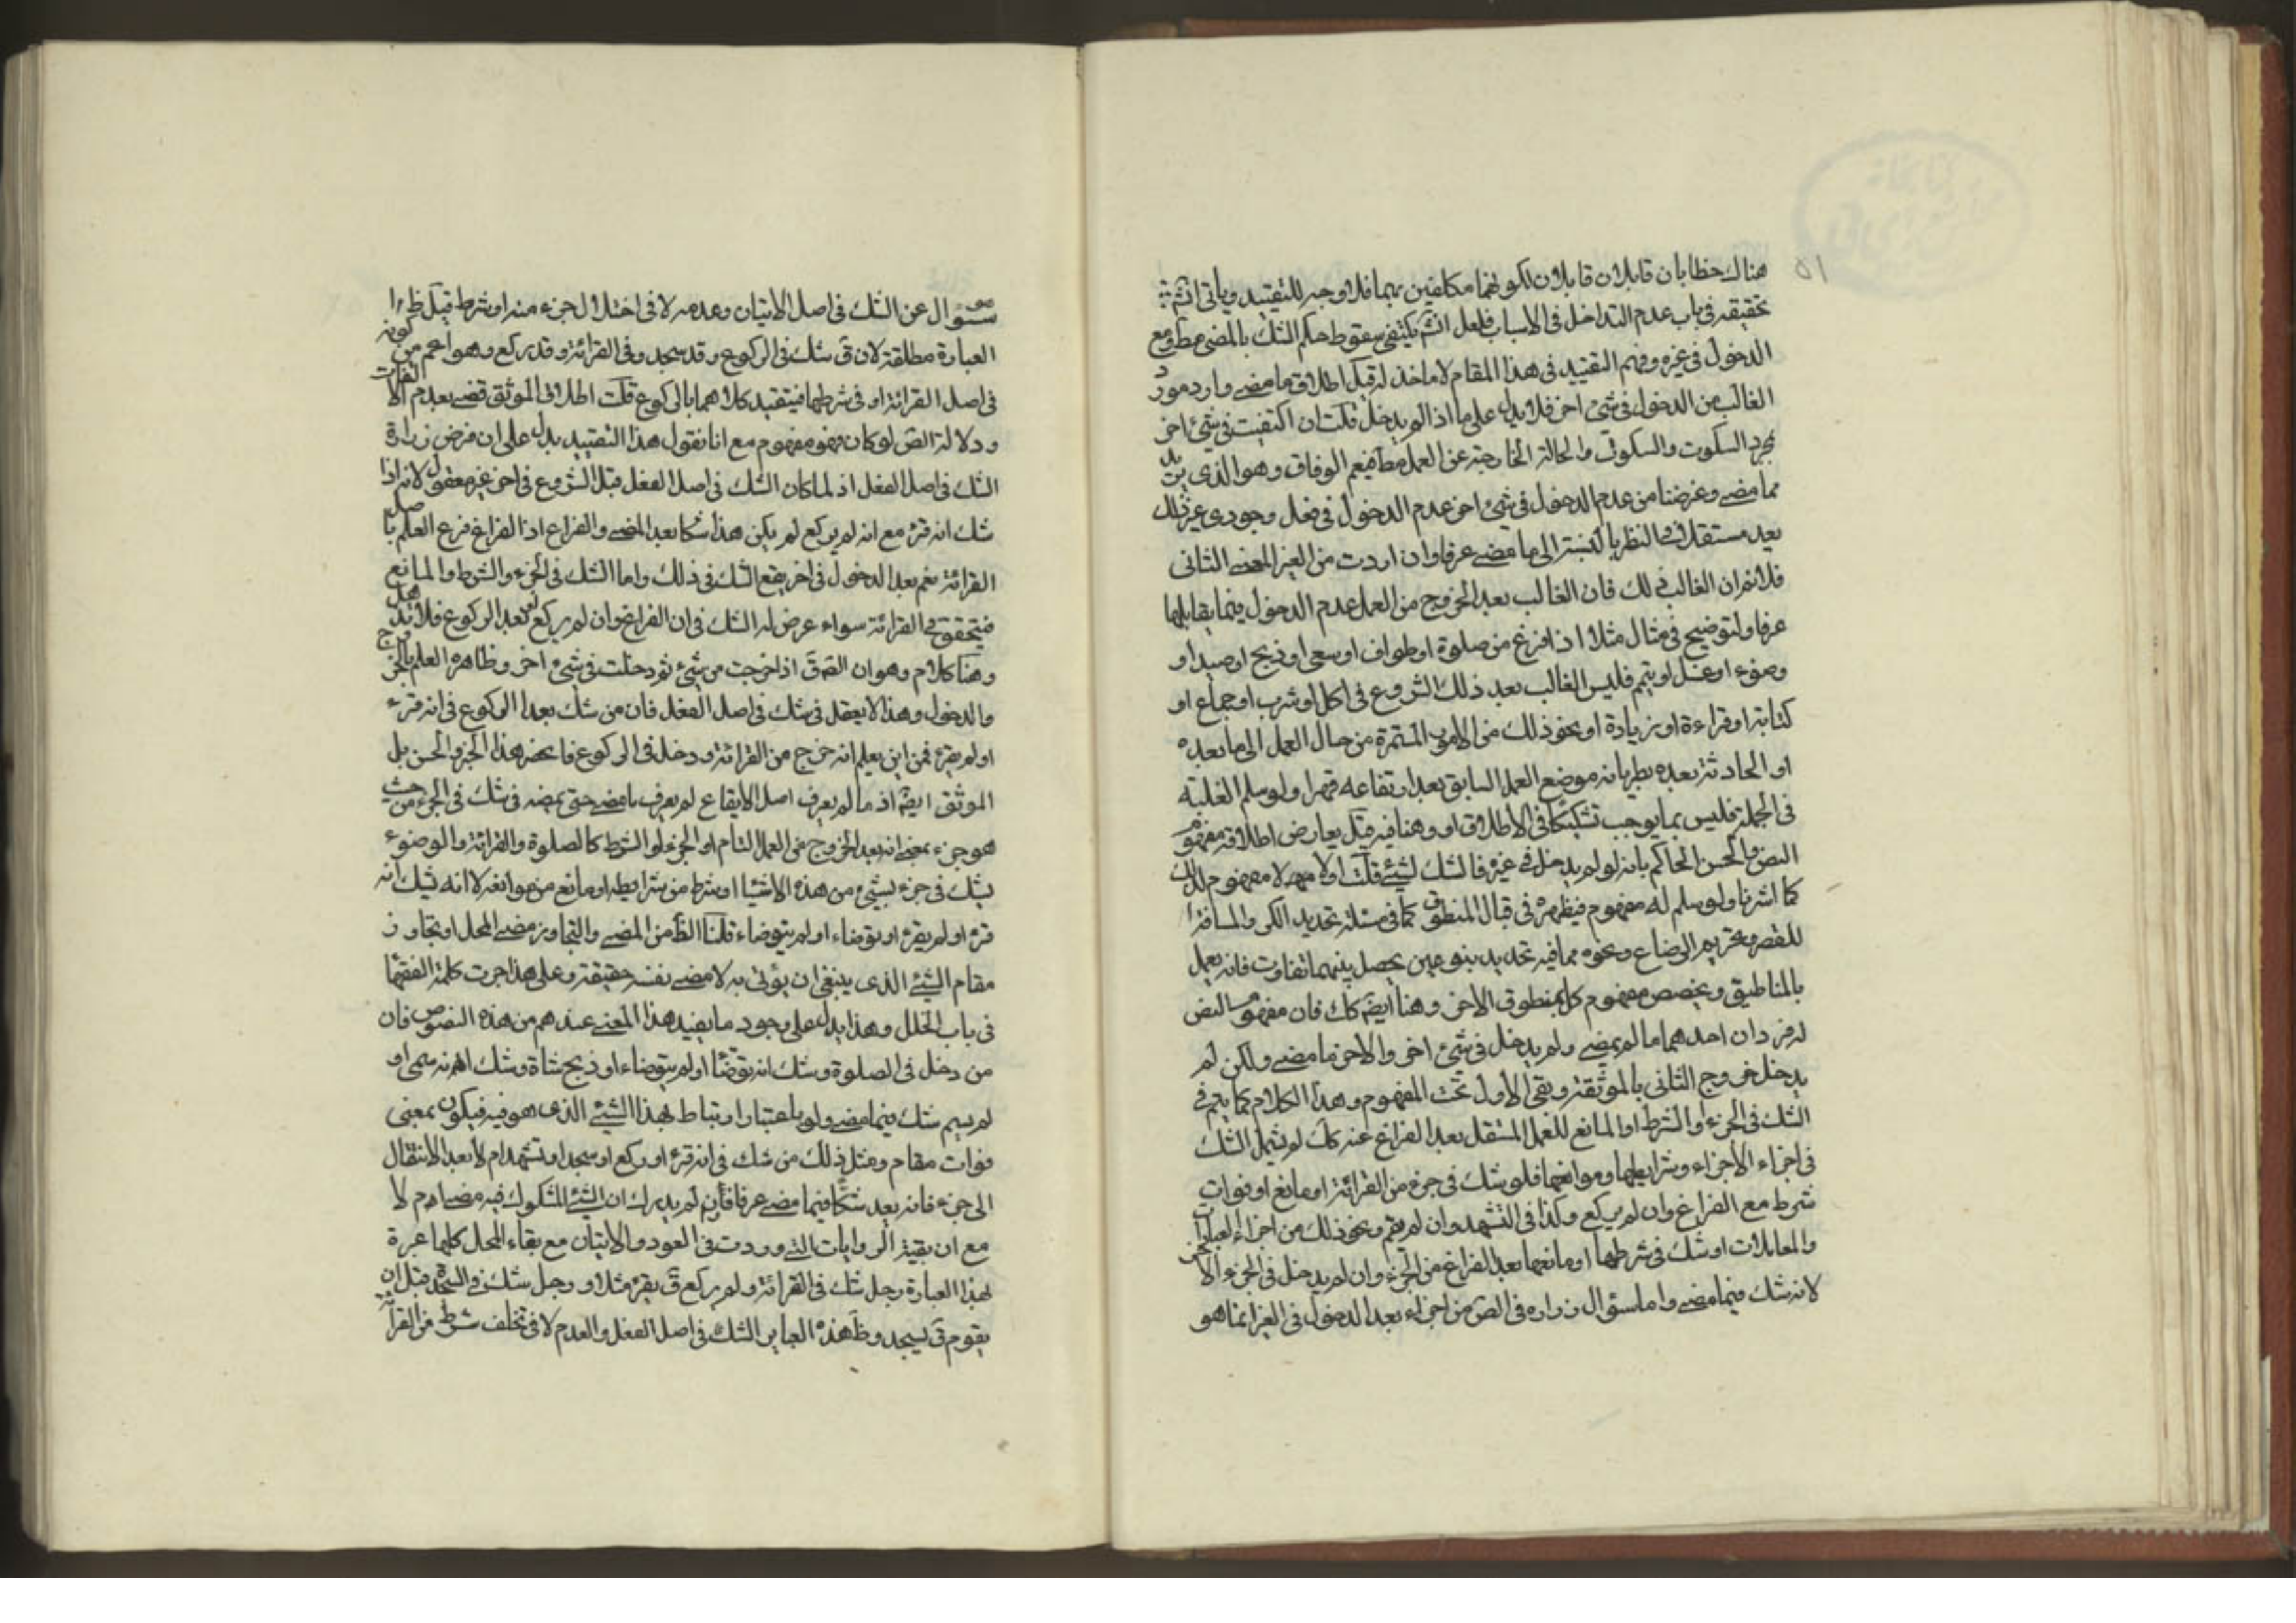 ٥١
هناك خطابان قابلان قابلان لكونهما مكلفين بهما فلا وجه للتقييد ويأتى انش تع
تحقيقه فى باب عدم التداخل فى الاسباب فلعل يكتفى سقوط حكم الشك بالمضى مط ومع
الدخول فى غيره وفهم التقييد فى هذا المقام لا ماخذ له قيل اطلاق ما مضى وارد مورد
الغالب من الدخول فى شئ اخر فلا يدل على ما اذا لو يدخل قلت ان اكتفيت فى شئ اخر
بمجرد السكوت والسكون والحالة الخارجة عن العمل مط فنعم الوفاق وهو الذى
مما مضى وغرضنا من عدم الدخول فى شئ اخر عدم الدخول فى فعل وجودى غير ذلك
يعد مستقلا فى النظر بالنسبة الى ما مضى عرفا وان اردت من الغير المعنى الثانى
فلا نم ان الغالب ذلك فان الغالب بعد الخروج من العمل عدم الدخول فيما يقابلها
عرفا ولتوضيح فى مثال مثلا اذا فرغ من صلوة او طواف او سعى او ذبح او صيد او
وضوء او غسل او تيمم فليس الغالب بعد ذلك الشروع فى اكل او شرب او جماع او
كتابة او قراءة او زيادة او نحو ذلك من الامور المستمرة من حال العمل الى ما بعده
او الحادثة بعده بطريانه موضع العمل السابق بعد ارتفاعه قهرا ولو سلم الغلبة
فى الجملة فليس بما يوجب تشكيكا فى الاطلاق او وهنا فيه قيل يعارض اطلاقه مفهوم
النص والحسن الحاكم بانه لو لم يدخل فى غيره فالشك لشئ قلت اولا مهلا مفهوم لذلك
كما اشرنا ولو سلم له مفهوم فيظهره فى قبال المنطوق كما فى مسئلة تحديد الكر والمسافة
للقصر وتحريم الرضاع ونحوه مما فيه تحديد بنوعين يحصل بينهما تفاوت فانه يعمل
بالمناطيق ويخصص مفهوم كل بمنطوق الاخر وهنا ايضه كك فان مفهوم النص
له فردان احدهما ما لم يمضى ولم يدخل فى شئ اخر والاخر ما مضى ولكن لم
يدخل خروج الثانى بالموثقة وبقى الاول تحت المفهوم وهذا الكلام كما يتم فى
الشك فى الجزء والشرط او المانع للعمل المستقل بعد الفراغ عنه كك لو يشمل الشك
فى اجزاء الاجزاء وشرايطها وموانعها فلو شك فى جزء من القرائة او مانع او فوات
شرط مع الفراغ وان لم يركع وكذا فى التشهد وان لم يقم ونحو ذلك من اجزاء العبادات
والمعاملات او شك فى شرطها او مانعها بعد الفراغ من الجزء وان لم يدخل فى الجزء الاخر
لانه شك فيما مضى واما سؤال زراره فى الص من اجزاء بعد الدخول فى الغير انما هو
سؤال عن الشك فى اصل الاتيان وعدمه لا فى اختلال جزء منه او شرط قيل ظ
العبارة مطلقة لان ق شك فى الركوع وقد سجد وفى القرائة وقد ركع وهو اعم من كونه
فى اصل القرائة او فى شرطها فيتقيد كلاهما بالركوع قلت اطلاق الموثق قضى بعدم الالتفات
ودلالة الص لو كان فهو مفهوم مع انا نقول هذا التقييد يدل على ان فرض زرارة
الشك فى اصل الفعل اذ لما كان الشك فى اصل الفعل قبل الشروع فى اخر غير معقول لانه اذا
شك انه قرء مع انه لم يركع لم يكن هذا شكا بعد المضى والفراغ اذ الفراغ فرع العلم باصل
القرائة نعم بعد الدخول فى اخر يقع الشك فى ذلك واما الشك فى الجزء والشرط والمانع
فيتحقق فى القرائة سواء عرض له الشك فى ان الفراغ وان لم يركع بعد الركوع فلا
وهنا كلام وهو ان الص ق اذا خرجت من شئ ثم دخلت فى شئ اخر وظاهره العلم بالخروج
والدخول وهذا لا يعقل فى شك فى اصل الفعل فان من شك بعد الركوع فى انه قرء
او لم يقرء فمن اين يعلم انه خرج من القرائة ودخل فى الركوع هذا الخبر والحسن بل
الموثق ايضه اذ ما لم يعرف اصل الايقاع لم يعرف ما مضى حتى يمضه فى شك فى الجزء من حيث
هو جزء بمعنى انه بعد الخروج عن العمل التام او الجزء لو الشرط كالصلوة والقرائة والوضوء
يشك فى جزء بشئ من هذه الاشياء او شرط من شرايطه او مانع من موانعه لا انه يشك انه
قرء او لم يقرء او توضاء او لم يتوضاء قلنا الظ من المضى والتجاوز مضى المحل او تجاوز
مقام الشئ الذى ينبغى ان يؤتى به لا مضى نفسه حقيقة وعلى هذا جرت كلمة الفقهاء
فى باب الخلل وهذا يدل على وجود ما يفيد هذا المعنى عندهم من هذه النصوص فان
من دخل فى الصلوة وشك انه توضأ او لم يتوضاء او ذبح شاة وشك انه سمى او
لم يسم شك فيما مضى ولو باعتبار ارتباط بهذا الشئ الذى هو فيه فيكون بمعنى
فوات مقام ومثل ذلك من شك فى انه قرء او ركع او سجد او تشهد ام لا بعد الانتقال
الى جزء فانه يعد شكا فيما مضى عرفا لم يدرك ان الشئ المشكوك فيه مضى ام لا
مع ان بقية الروايات التى وردت فى العود والاتيان مع بقاء المحل كلها عبرة
بهذا العبارة رجل شك فى القرائة ولم يركع ق يقرء مثلا ورجل شك فى السجدة قبل ان
يقوم ق يسجد وظ هذه العباير الشك فى اصل الفعل والعدم لا فى تخلف شرط من القرائة